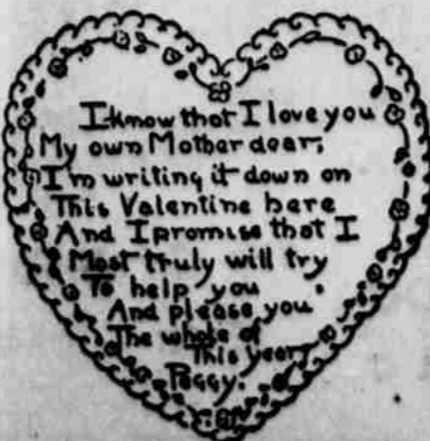 I know that I love you
My own Mother dear;
I'm writing it down on
This Valentine here
And I promise that I
Most truly will try
To help you
And please you
The whole of
This year,
Peggy.